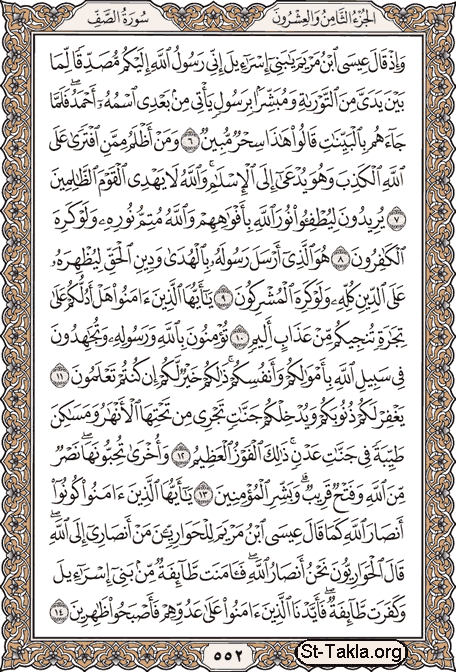 الجزء الثامن والعشرون سورة الصف
وَإِذْ قَالَ عِيسَى ٱبْنُ مَرْيَمَ يَٰبَنِىٓ إِسْرَٰٓءِيلَ إِنِّى رَسُولُ ٱللَّهِ إِلَيْكُم مُّصَدِّقًا لِّمَا
بَيْنَ يَدَىَّ مِنَ ٱلتَّوْرَىٰةِ وَمُبَشِّرًۢا بِرَسُولٍ يَأْتِى مِنۢ بَعْدِى ٱسْمُهُۥٓ أَحْمَدُ ۖ فَلَمَّا
جَآءَهُم بِٱلْبَيِّنَٰتِ قَالُوا۟ هَٰذَا سِحْرٌ مُّبِينٌ ٦ وَمَنْ أَظْلَمُ مِمَّنِ ٱفْتَرَىٰ عَلَى
ٱللَّهِ ٱلْكَذِبَ وَهُوَ يُدْعَىٰٓ إِلَى ٱلْإِسْلَٰمِ ۚ وَٱللَّهُ لَا يَهْدِى ٱلْقَوْمَ ٱلظَّٰلِمِينَ
٧ يُرِيدُونَ لِيُطْفِـُٔوا۟ نُورَ ٱللَّهِ بِأَفْوَٰهِهِمْ وَٱللَّهُ مُتِمُّ نُورِهِۦ وَلَوْ كَرِهَ
ٱلْكَٰفِرُونَ ٨ هُوَ ٱلَّذِىٓ أَرْسَلَ رَسُولَهُۥ بِٱلْهُدَىٰ وَدِينِ ٱلْحَقِّ لِيُظْهِرَهُۥ
عَلَى ٱلدِّينِ كُلِّهِۦ وَلَوْ كَرِهَ ٱلْمُشْرِكُونَ ٩ يَٰٓأَيُّهَا ٱلَّذِينَ ءَامَنُوا۟ هَلْ أَدُلُّكُمْ عَلَىٰ
تِجَٰرَةٍ تُنجِيكُم مِّنْ عَذَابٍ أَلِيمٍ ١٠ تُؤْمِنُونَ بِٱللَّهِ وَرَسُولِهِۦ وَتُجَٰهِدُونَ
فِى سَبِيلِ ٱللَّهِ بِأَمْوَٰلِكُمْ وَأَنفُسِكُمْ ۚ ذَٰلِكُمْ خَيْرٌ لَّكُمْ إِن كُنتُمْ تَعْلَمُونَ ١١
يَغْفِرْ لَكُمْ ذُنُوبَكُمْ وَيُدْخِلْكُمْ جَنَّٰتٍ تَجْرِى مِن تَحْتِهَا ٱلْأَنْهَٰرُ وَمَسَٰكِنَ
طَيِّبَةً فِى جَنَّٰتِ عَدْنٍ ۚ ذَٰلِكَ ٱلْفَوْزُ ٱلْعَظِيمُ ١٢ وَأُخْرَىٰ تُحِبُّونَهَا ۖ نَصْرٌ
مِّنَ ٱللَّهِ وَفَتْحٌ قَرِيبٌ ۗ وَبَشِّرِ ٱلْمُؤْمِنِينَ ١٣ يَٰٓأَيُّهَا ٱلَّذِينَ ءَامَنُوا۟ كُونُوٓا۟
أَنصَارَ ٱللَّهِ كَمَا قَالَ عِيسَى ٱبْنُ مَرْيَمَ لِلْحَوَارِيِّـۧنَ مَنْ أَنصَارِىٓ إِلَى ٱللَّهِ ۖ
قَالَ ٱلْحَوَارِيُّونَ نَحْنُ أَنصَارُ ٱللَّهِ ۖ فَـَٔامَنَت طَّآئِفَةٌ مِّنۢ بَنِىٓ إِسْرَٰٓءِيلَ
وَكَفَرَت طَّآئِفَةٌ ۖ فَأَيَّدْنَا ٱلَّذِينَ ءَامَنُوا۟ عَلَىٰ عَدُوِّهِمْ فَأَصْبَحُوا۟ ظَٰهِرِينَ ١٤
٥٥٢
St-Takla.org